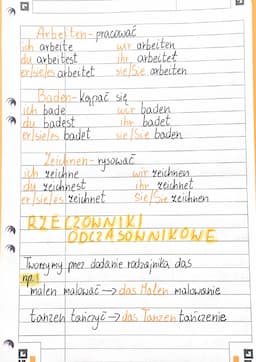 Arbeiten - pracować
ich arbeite wir arbeiten
du arbeitest ihr arbeitet
er/sie/es arbeitet sie/Sie arbeiten
Baden - kąpać się
ich bade wir baden
du badest ihr badet
er/sie/es badet sie/Sie baden
Zeichnen - rysować
ich zeichne wir zeichnen
du zeichnest ihr zeichnet
er/sie/es zeichnet sie/Sie zeichnen
RZECZOWNIKI
ODCZASOWNIKOWE
Tworzymy przez dodanie rodzajnika das
np.
malen malować → das Malen malowanie
tanzen tańczyć → das Tanzen tańczenie